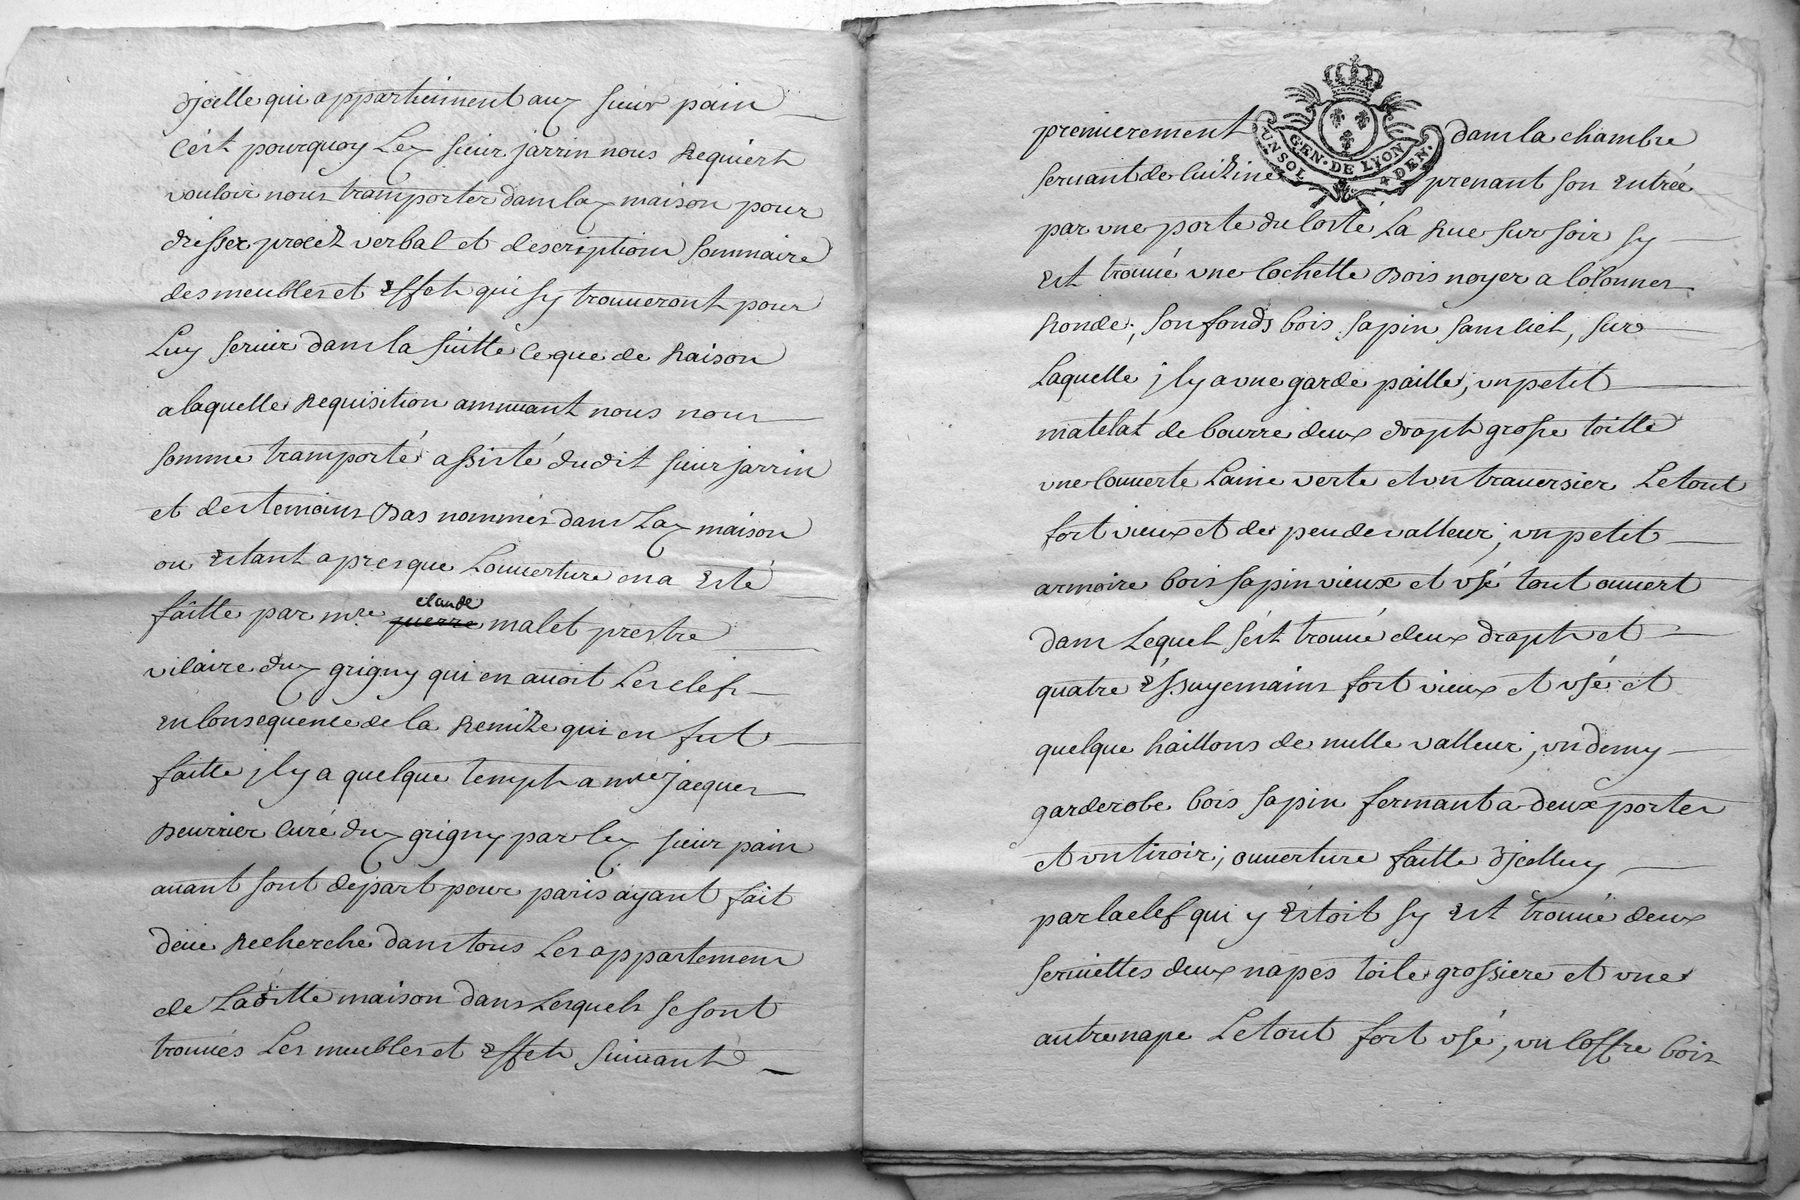 d'jcelle qui appartiennent aux sieur pain
C'est pourquoy Led. sieur jarrin nous Requiert
vouloir nous transporter dans lad. maison pour
dresser procez verbal et description sommaire
des meubles et Effets qui sy trouueront pour
Luy seruir dans la suitte ce que de Raison
a laquelle Requisition annuant nous nous
somme transporté assisté dudit sieur jarrin
et des temoins Bas nommés dans Lad. maison
ou Estant apres que Louuerture en a Esté
faitte par mre pierre claude malet prestre
vicaire dud. grigny qui en auoit Les clefs
En Consequence de la Remize qui en fut
faitte jl y a quelque temps a mre jacques
Beurrier Curé dud. grigny par led. sieur pain
auant sont depart pour paris ayant fait
deüe Recherche dans tous Les appartemens
de Laditte maison dans Lesquels se sont
trouués Les meubles et Effets suiuant
premierement dans la chambre
GEN. DE LYON
UN SOL 4 DEN.
seruant de Cuizine prenant son Entrée
par vne porte du Costé La Rue sur soir sy
Est trouué vne Cochette Bois noyer a Colonnes
Ronde; son fonds bois sapin sans Ciel, sur
Laquelle jl y a vne garde paille, vn petit
matelat de bourre deux draps grosse toille
vne Couuerte Laine verte et vn trauersier Le tout
fort vieux et de peu de valleur; vn petit
armoire bois sapin vieux et vsé tout ouuert
dans Lequel s'est trouué deux draps et
quatre Essuyemains fort vieux et vsé et
quelque haillons de nulle valleur, vn demy
garderobe bois sapin fermant a deux portes
et vn tiroir; ouuerture faitte d'jcelluy
par la clef qui y Estoit sy Est trouué deux
seruiettes deux napes toile grossiere et vne
autre nape Le tout fort vsé, vn Coffre bois